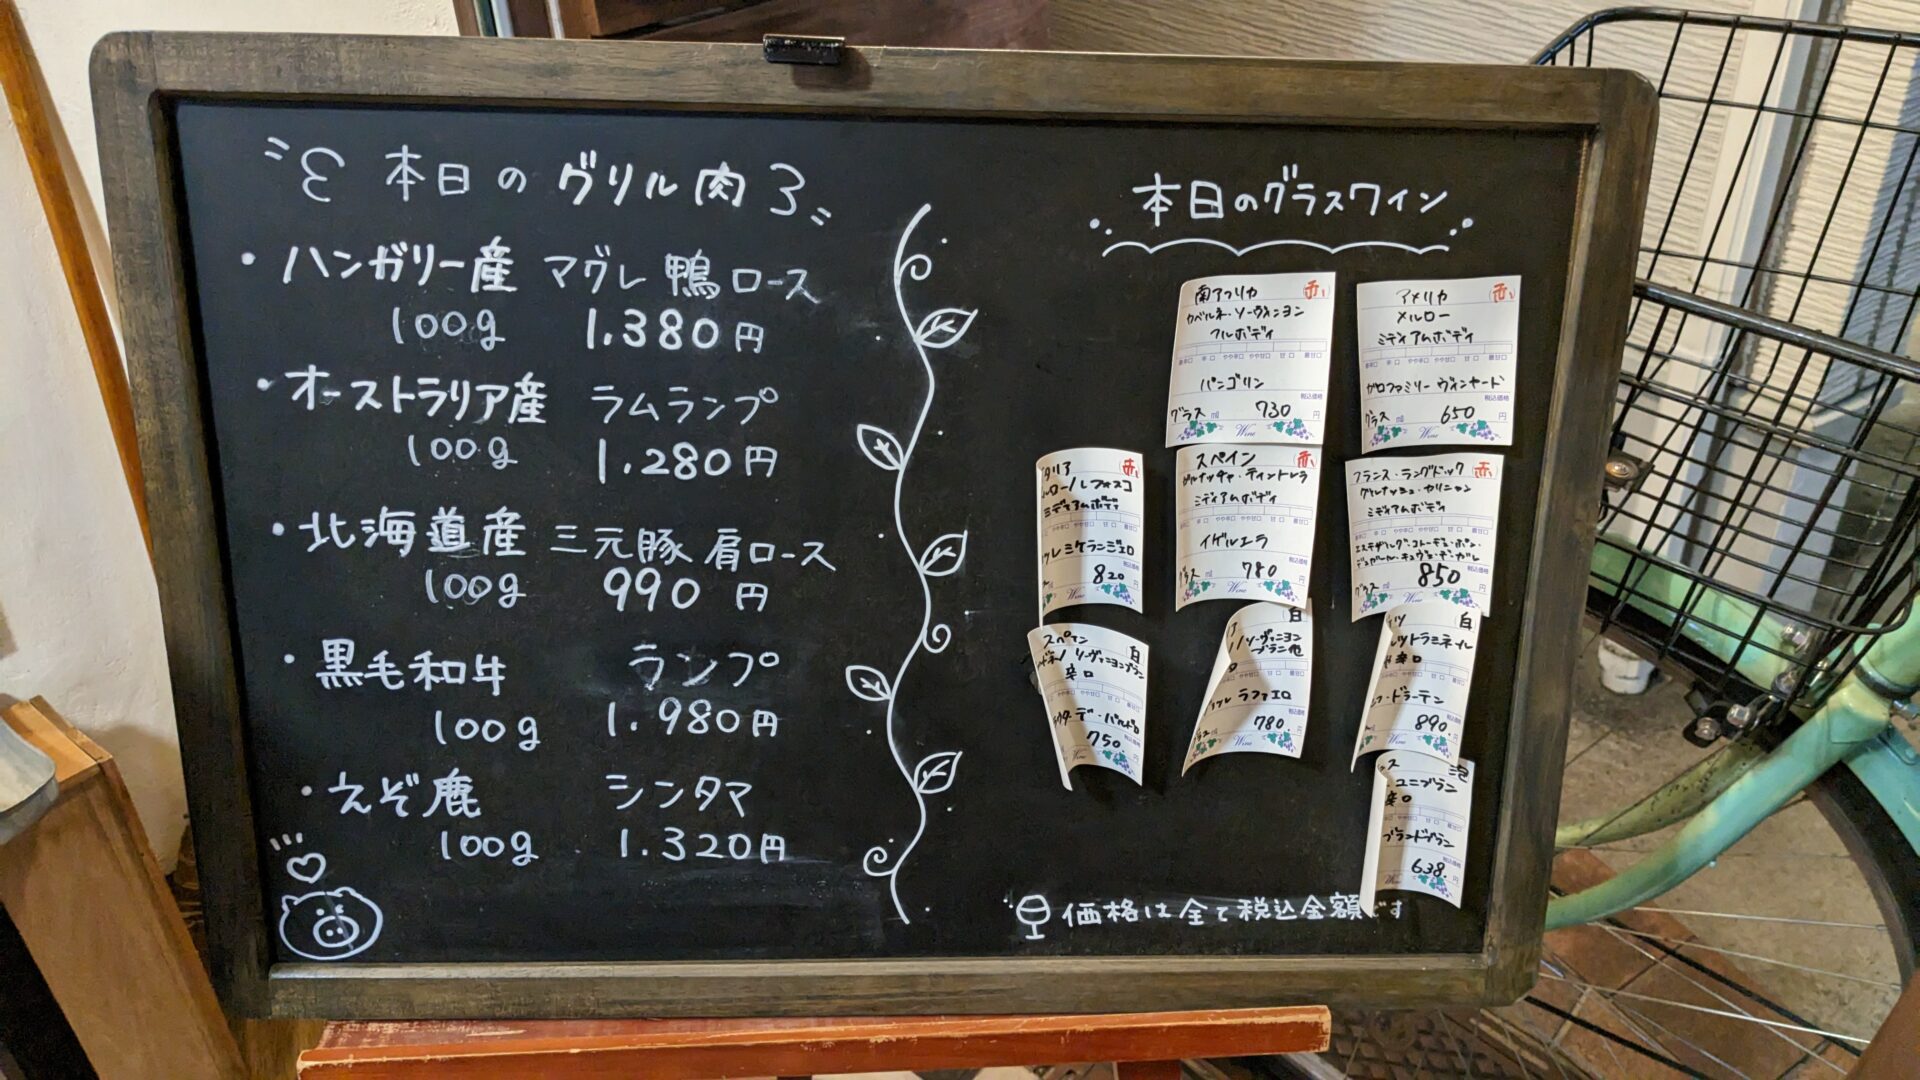 本日のグリル肉
・ハンガリー産 マグレ鴨ロース
100g 1.380円
・オーストラリア産 ラムランプ
100g 1.280円
・北海道産 三元豚肩ロース
100g 990円
・黒毛和牛 ランプ
100g 1.980円
・えぞ鹿 シンタマ
100g 1.320円
本日のグラスワイン
南アフリカ 赤
カベルネ・ソーヴィニヨン
フルボディ
パンゴリン
税込価格
グラス ml 730 円
Wine
アメリカ 赤
メルロー
ミディアムボディ
ガロファミリー ヴィンヤード
税込価格
グラス ml 650 円
Wine
タリア 赤
ミディアムボディ
ミケランジェロ
税込価格
820 円
Wine
スペイン 赤
ガルナッチャ・ティントレラ
ミディアムボディ
イゲルエラ
税込価格
グラス ml 780 円
Wine
フランス・ラングドック 赤
グルナッシュ・カリニャン
ミディアムボディ
税込価格
グラス ml 850 円
スペイン 白
ソーヴィニヨンブラン
辛口
税込価格
750 円
Wine
白
ソーヴィニヨン
ブラン他
ラファエロ
税込価格
780. 円
Wine
白
ツトラミネール
辛口
ドラーテン
税込価格
890. 円
Wine
ス 泡
ユニブラン
辛口
ブランドブラン
税込価格
638. 円
Wine
価格は全て税込金額です